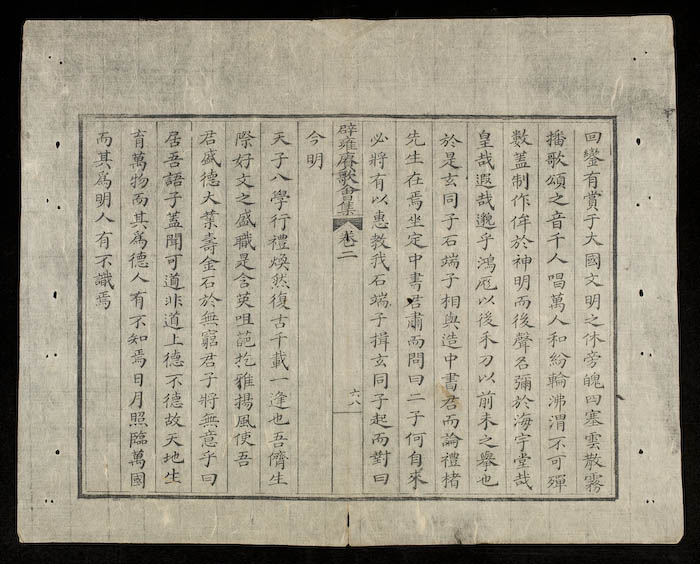 回鑾有賞于大國文明之休旁魄四塞雲散霧
播歌頌之音千人唱萬人和紛輪沸渭不可殫
數蓋制作侔於神明而後聲名彌於海宇堂哉
皇哉遐哉邈乎鴻厖以後禾刀以前未之舉也
於是玄同子石端子相與造中書君而論禮楮
先生在焉坐定中書君肅而問曰二子何自來
必將有以惠教我石端子揖玄同子起而對曰
今明
辟雍賡歌集 卷二
六八
天子入學行禮煥然復古千載一逢也吾儕生
際好文之盛職是含英咀葩扢雅揚風使吾
君盛德大業壽金石於無窮君子將無意乎曰
居吾語子蓋聞可道非道上德不德故天地生
育萬物而其爲德人有不知焉日月照臨萬國
而其爲明人有不識焉